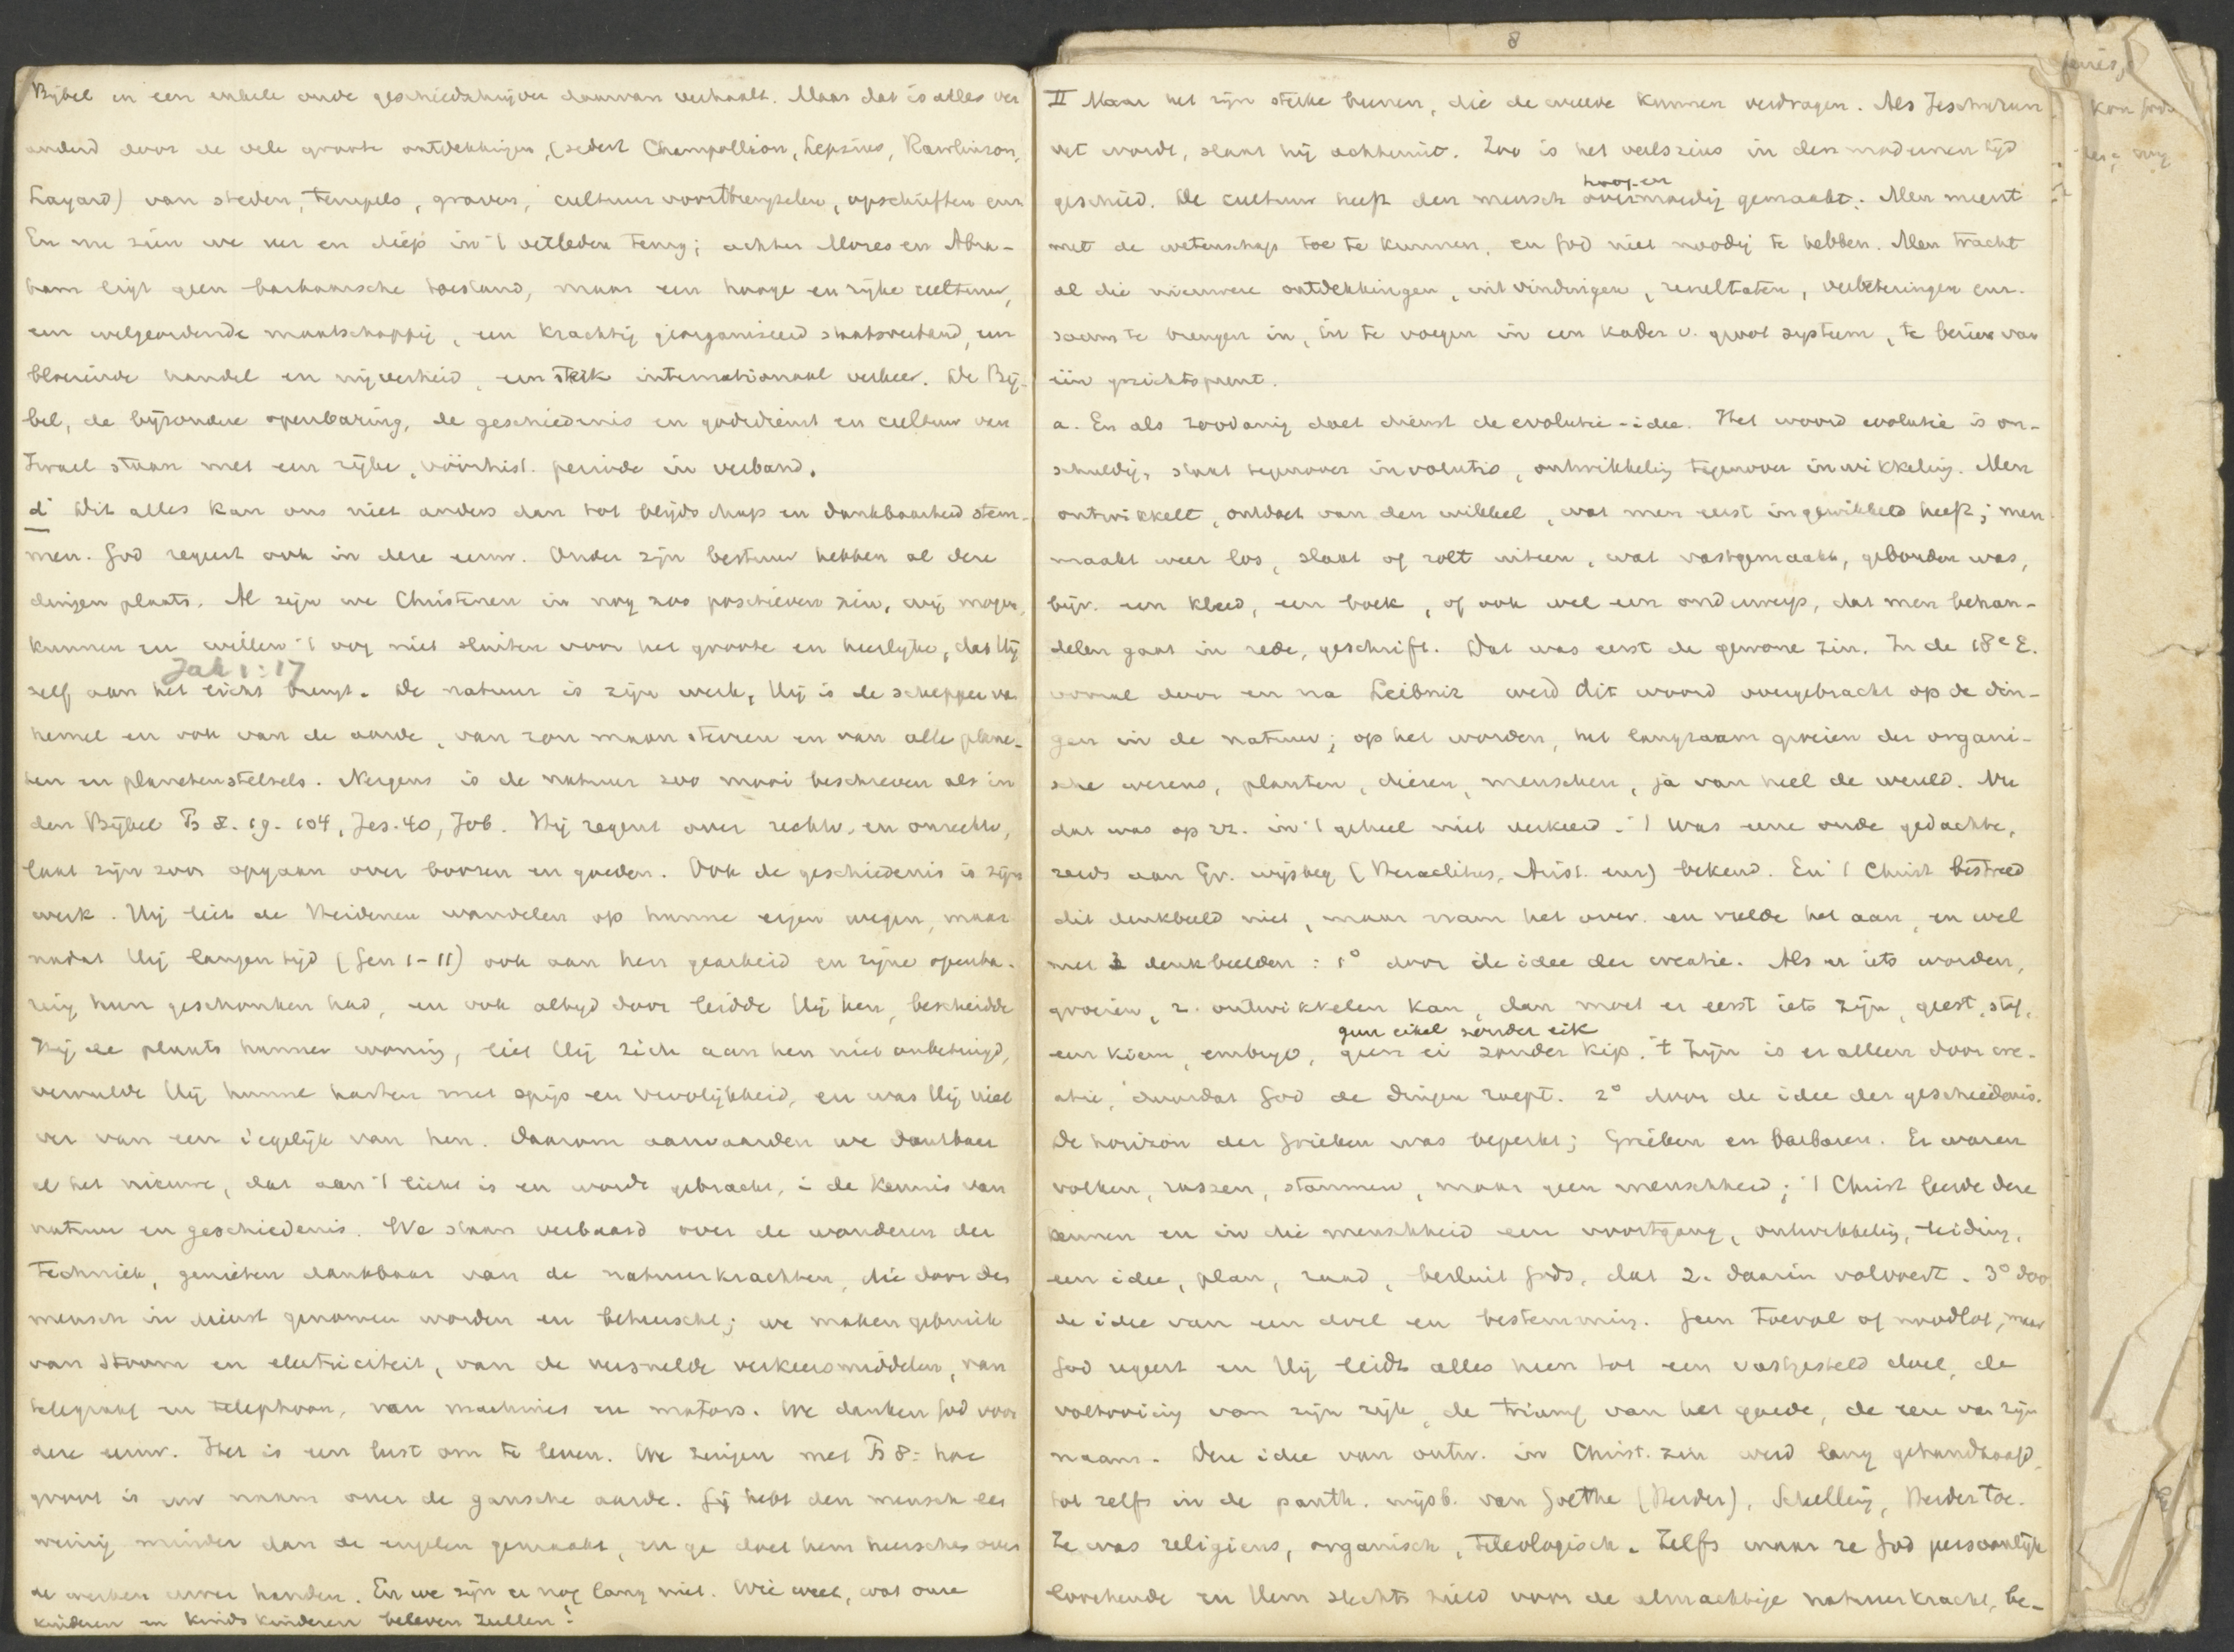 Bijbel en een enkele oude geschiedschrijver daarvan verhaalt. Maar dat is alles ver
anderd door de vele groote ontdekkingen, (sedert Champollion, Lepsius, Rawlinson,
Layard) van steden, tempels, graven, cultuurvoortbrengselen, opschriften enz
En nu zien we ver en diep in 't verleden terug; achter Mozes en Abra-
ham ligt geen barbaarsche toestand, maar een hooge en rijke cultuur,
een welgeordende maatschappij, een krachtig georganiseerd staatsverband, een
bloeiende handel en nijverheid, een sterk internationaal verkeer. De Bij-
bel, de bijzondere openbaring, de geschiedenis en godsdienst en cultuur van
Israel staan met een rijke, vóórhist. periode in verband.
d Dit alles kan ons niet anders dan tot blijdschap en dankbaarheid stem-
men. God regeert ook in deze eeuw. Onder zijn bestuur hebben al deze
dingen plaats. Al zijn we Christenen in nog zoo positieven zin, wij mogen,
kunnen en willen 't oog niet sluiten voor het groote en heerlijke, dat Hij
Jak 1:17
zelf aan het licht brengt. De natuur is zijn werk, Hij is de schepper van
hemel en ook van de aarde, van zon maan sterren en van alle plane-
ten en planetenstelsels. Nergens is de natuur zoo mooi beschreven als in
den Bijbel Ps 8. 19. 104, Jes. 40, Job. Hij regent over rechtv. en onrechtv,
laat zijn zon opgaan over boozen en goeden. Ook de geschiedenis is zijn
werk. Hij liet de Heidenen wandelen op hunne eigen wegen, maar
nadat Hij langen tijd (Gen 1-11) ook aan hen gearbeid en zijne openba-
ring hun geschonken had, en ook altijd door leidde Hij hen, bescheidde
Hij de plaats hunner woning, liet Hij zich aan hen niet onbetuigd,
vervulde Hij hunne harten met spijs en vroolijkheid, en was Hij niet
ver van een iegelijk van hen. Daarom aanvaarden we dankbaar
al het nieuwe, dat aan 't licht is en wordt gebracht, i. de kennis van
natuur en geschiedenis. We staan verbaasd over de wonderen der
techniek, genieten dankbaar van de natuurkrachten, die door den
mensch in dienst genomen worden en beheerscht; we maken gebruik
van stoom en electriciteit, van de versnelde verkeersmiddelen, van
telegraaf en telephoon, van machines en motors. We danken God voor
deze eeuw. Het is een lust om te leven. We zingen met Ps 8: hoe
groot is uw naam over de gansche aarde. Gij hebt den mensch een
weinig minder dan de engelen gemaakt, en ge doet hem heerschen over
de werken uwer handen. En we zijn er nog lang niet. Wie weet, wat onze
kinderen en kindskinderen beleven zullen!
8
II Maar het zijn sterke beenen, die de weelde kunnen verdragen. Als Jeschurun
vet wordt, slaat hij achteruit. Zoo is het veelszins in den modernen tijd
hoog- en
geschied. De cultuur heeft den mensch overmoedig gemaakt. Men meent
met de wetenschap toe te kunnen, en God niet noodig te hebben. Men tracht
al die nieuwere ontdekkingen, uitvindingen, resultaten, verbeteringen enz.
saam te brengen in, in te voegen in een kader v. groot systeem, te bezien van
één gezichtspunt.
a. En als zoodanig doet dienst de evolutie-idee. Het woord evolutie is on-
schuldig, staat tegenover involutie, ontwikkeling tegenover inwikkeling. Men
ontwikkelt, ontdoet van den wikkel, wat men eerst ingewikkeld heeft; men
maakt weer los, slaat of rolt uiteen, wat vastgemaakt, gebonden was,
bijv. een kleed, een boek, of ook wel een onderwerp, dat men behan-
delen gaat in rede, geschrift. Dat was eerst de gewone zin. In de 18e E.
vooral door en na Leibniz werd dit woord overgebracht op de din-
gen in de natuur; op het worden, het langzaam groeien der organi-
sche wezens, planten, dieren, menschen, ja van heel de wereld. Nu
dat was op zz. in 't geheel niet verkeerd. 't Was eene oude gedachte,
reeds aan Gr. wijsbeg (Heraclitus, Arist. enz) bekend. En 't Christ bestreed
dit denkbeeld niet, maar nam het over en vulde het aan, en wel
met 3 denkbeelden: 1° door de idee der creatie. Als er iets worden,
groeien, z. ontwikkelen kan, dan moet er eerst iets zijn, geest, stof,
geen eikel zonder eik
een kiem, embryo, geen ei zonder kip. 't Zijn is er alleen door cre-
atie, doordat God de dingen roept. 2° door de idee der geschiedenis.
De horizon der Grieken was beperkt; Grieken en barbaren. Er waren
volken, rassen, stammen, maar geen menschheid; 't Christ leerde deze
kennen en in die menschheid een voortgang, ontwikkeling, leiding,
een idee, plan, raad, besluit Gods, dat z. daarin volvoert. 3° door
de idee van een doel en bestemming. Geen toeval of noodlot, maar
God regeert en Hij leidt alles heen tot een vastgesteld doel, de
voltooiing van zijn rijk, de triumf van het goede, de eere van zijn
naam. Deze idee van ontw. in Christ. zin werd lang gehandhaafd,
tot zelfs in de panth. wijsb. van Goethe (Herder), Schelling, toe.
Ze was religieus, organisch, teleologisch. Zelfs waar ze God persoonlijk
loochende en Hem slechts hield voor de almachtige natuurkracht, be-